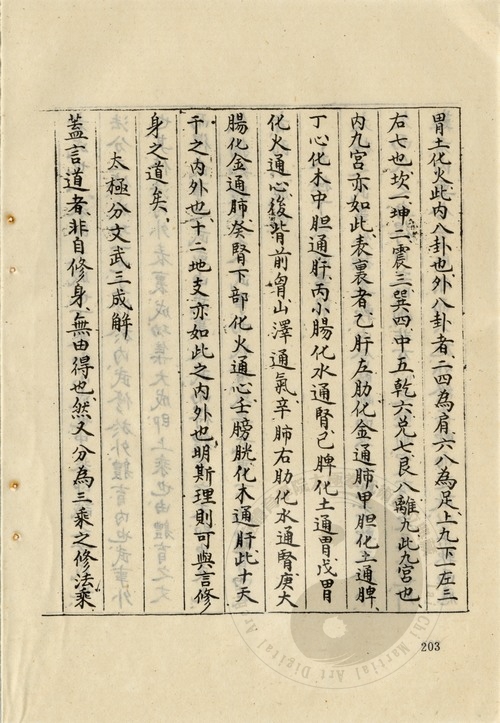 胃土化火、此内八卦也、外八卦者、二四為肩、六八為足、上九下一、左三
右七也、坎一、坤二、震三、巽四、中五、乾六、兑七、艮八、離九、此九宫也、
内九宫亦如此、表裏者、乙肝左肋化金通肺、甲胆化土通脾、
丁心化木中胆通肝、丙小腸化水通腎、己脾化土通胃、戊胃
化火通心、後背前胸、山澤通氣、辛肺右肋化水通腎、庚大
腸化金通肺、癸腎下部化火通心、壬膀胱化木通肝、此十天
干之内外也、十二地支亦如此之内外也、明斯理則可與言修
身之道矣、
太極分文武三成解
蓋言道者、非自修身、無由得也、然又分為三乘之修法、乘
203
Chi Martial Art Digital Ar